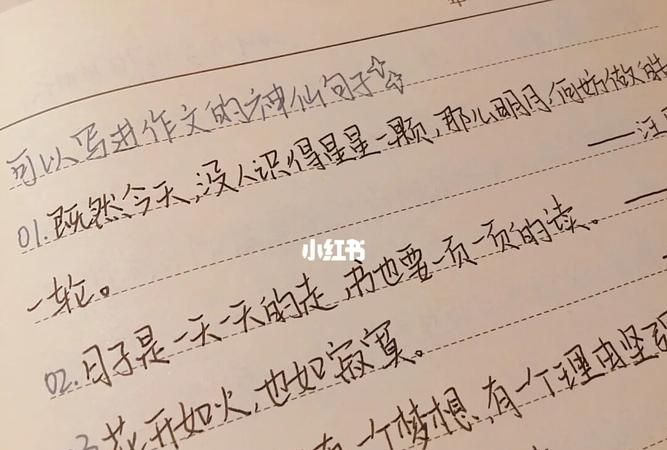 可以写进作文的神仙句子☆☆
01.既然今天,没人识得星星一颗,那么明日,何妨做皓
——汪
一轮。
小红书
02.日子是一天一天的走,书也要一页一页的读。——
03.花开如火,也如寂寞。
一个梦想,有一个理由坚